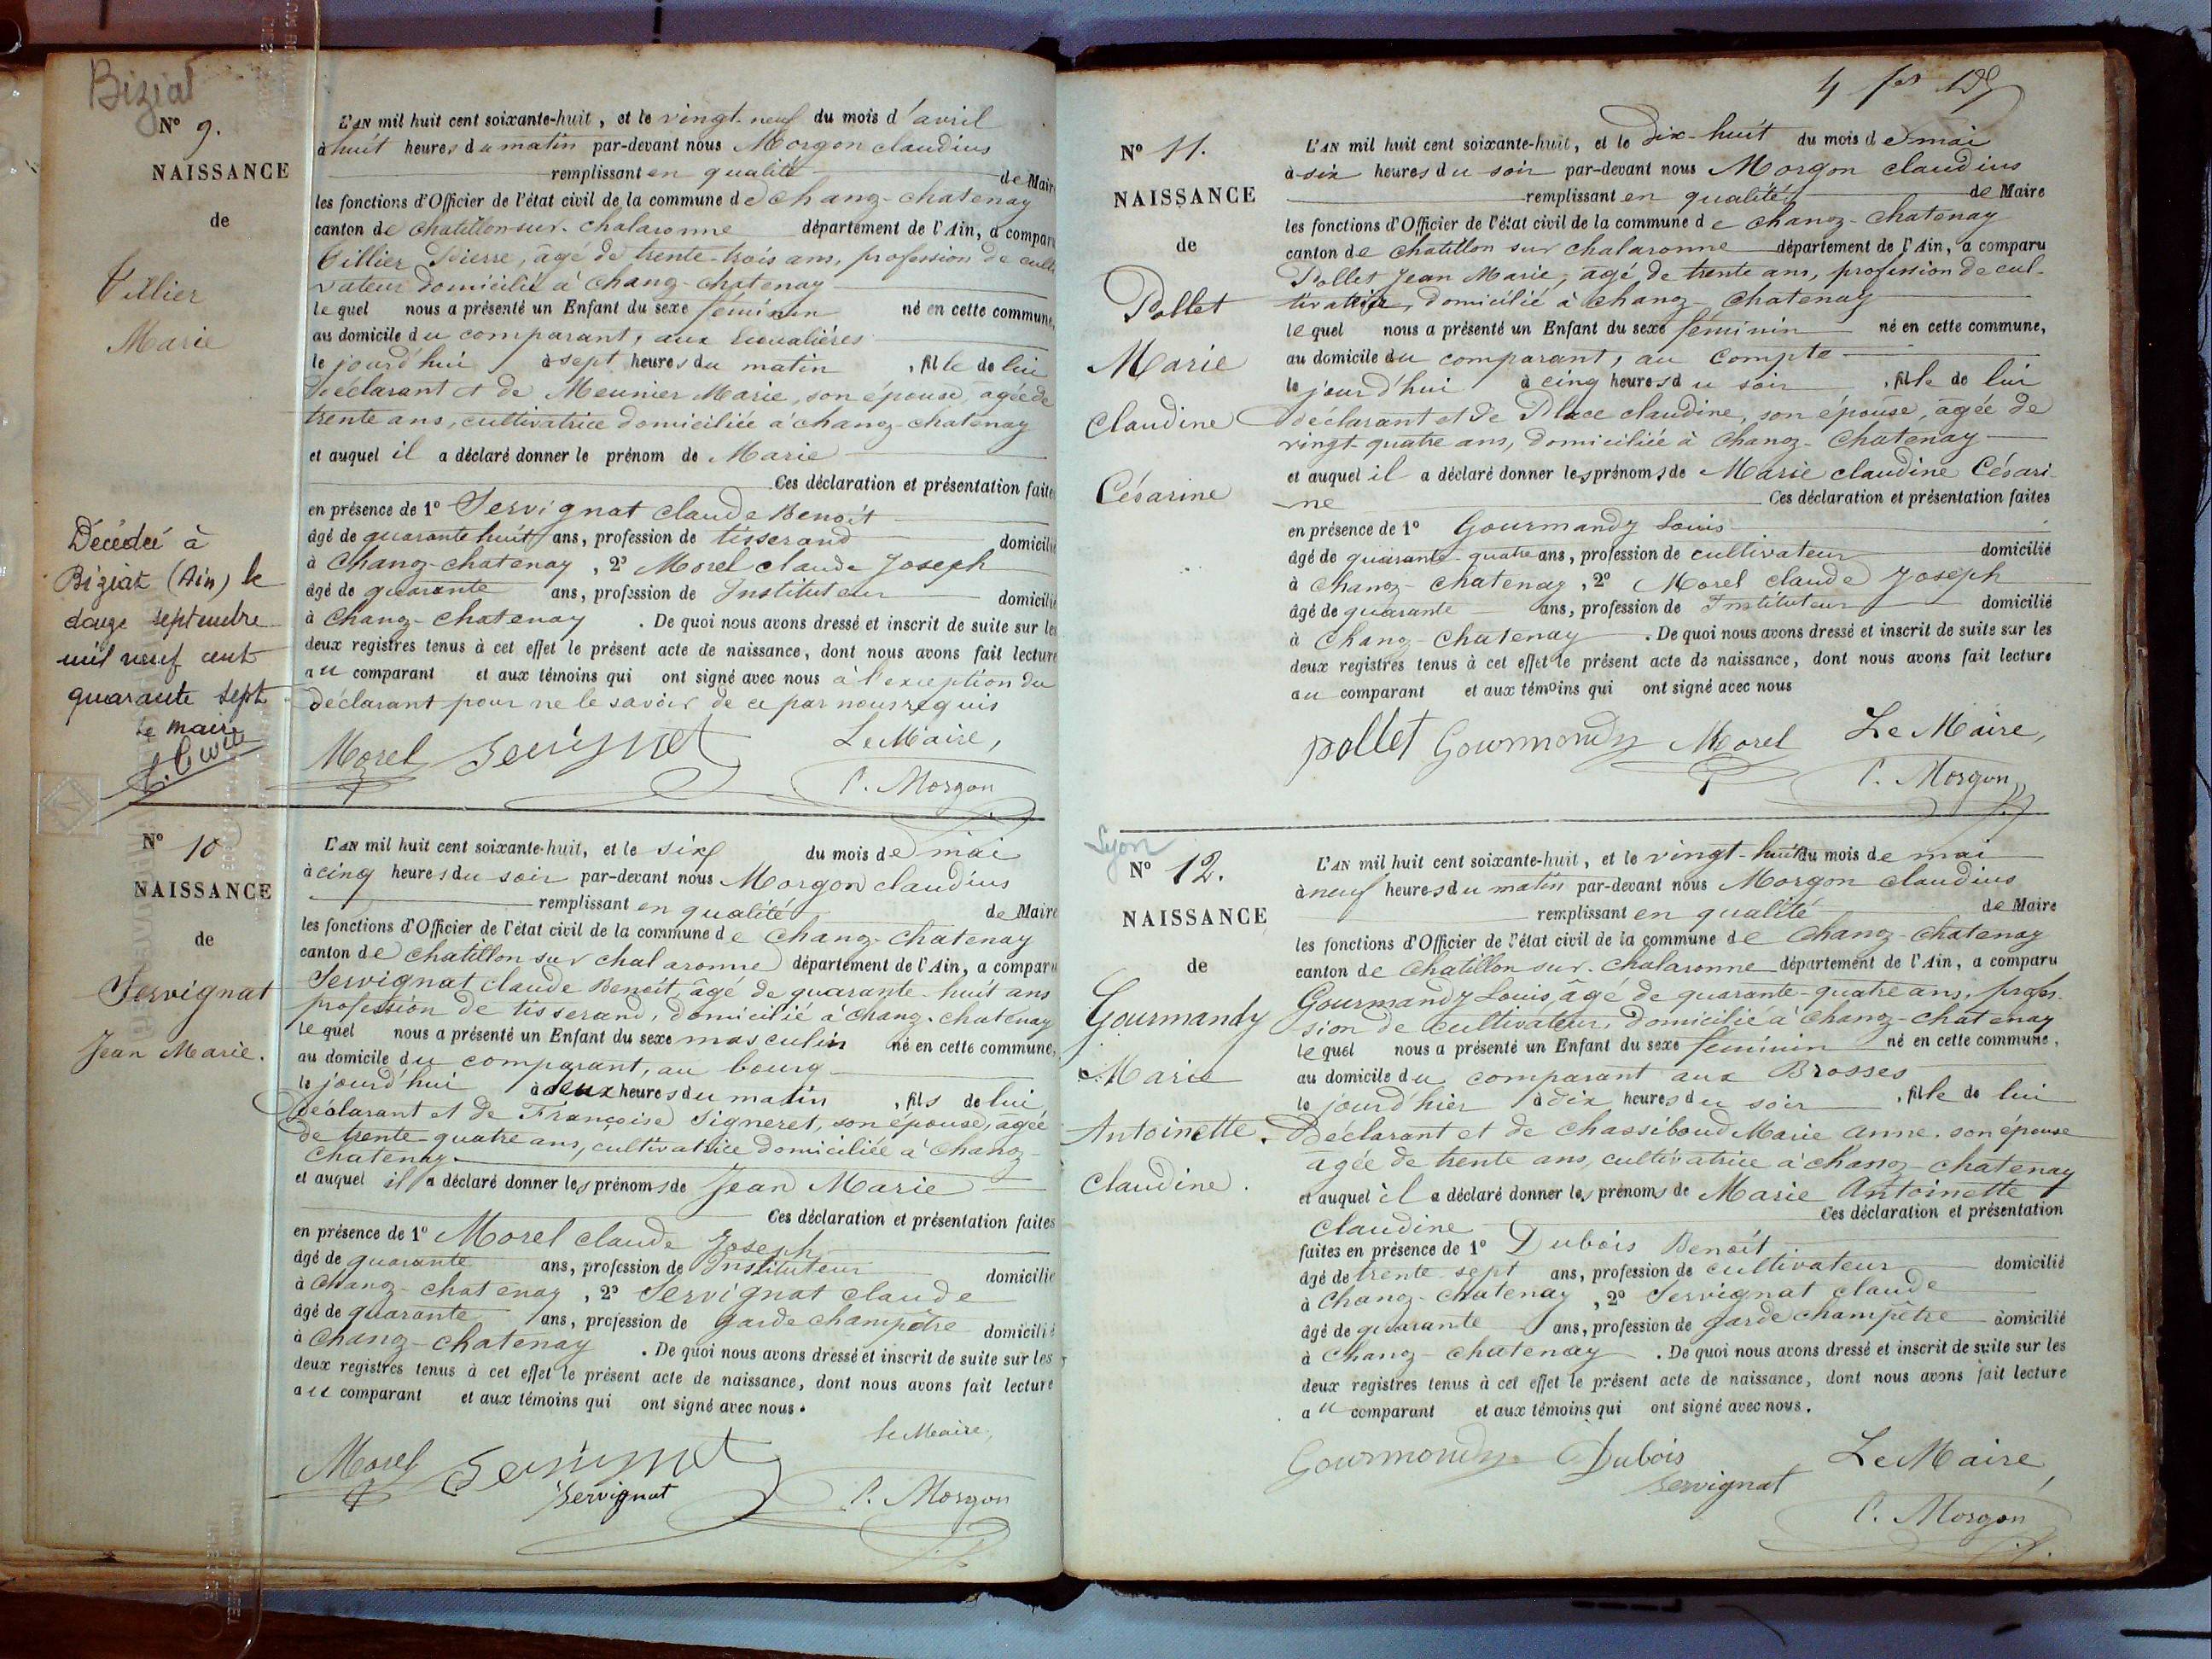 Biziat
N° 9.
NAISSANCE
de
Tillier
Marie
Décédée à
Biziat (Ain) le
douze septembre
mil neuf cent
quarante sept
Le maire
L'AN mil huit cent soixante-huit, et le vingt-neuf du mois d'avril
à huit heures du matin par-devant nous Morgon claudius
remplissant en qualité de Maire
les fonctions d'Officier de l'état civil de la commune de Chanoz-chatenay
canton de Chatillon-sur-chalaronne département de l'Ain, a comparu
Tillier Pierre, âgé de trente-trois ans, profession de culti
vateur domicilié à Chanoz-chatenay
le quel nous a présenté un Enfant du sexe féminin né en cette commune,
au domicile du comparant, aux
le jourd'hui à sept heures du matin, fille de lui
déclarant et de Meunier Marie, son épouse, âgée de
trente ans, cultivatrice domiciliée à chanoz-chatenay
et auquel il a déclaré donner le prénom de Marie
Ces déclaration et présentation faites
en présence de 1° Servignat claude Benoît
âgé de quarante huit ans, profession de tisserand domicilié
à Chanoz-chatenay, 2° Morel claude Joseph
âgé de quarante ans, profession de Instituteur domicilié
à Chanoz-chatenay. De quoi nous avons dressé et inscrit de suite sur les
deux registres tenus à cet effet le présent acte de naissance, dont nous avons fait lecture
au comparant et aux témoins qui ont signé avec nous à l'exception du
déclarant pour ne le savoir de ce par nous requis
Morel Servignat Le Maire,
C. Morgon
N° 10
NAISSANCE
de
Servignat
Jean Marie.
L'AN mil huit cent soixante-huit, et le six du mois de mai
à cinq heures du soir par-devant nous Morgon claudius
remplissant en qualité de Maire
les fonctions d'Officier de l'état civil de la commune de Chanoz-Chatenay
canton de chatillon sur chalaronne département de l'Ain, a comparu
Servignat claude Benoit, âgé de quarante-huit ans
profession de tisserand, domicilié à chanoz-chatenay
le quel nous a présenté un Enfant du sexe masculin né en cette commune,
au domicile du comparant, au bourg
le jourd'hui à deux heures du matin, fils de lui
déclarant et de Françoise Signeret, son épouse, âgée
de trente-quatre ans, cultivatrice domiciliée à chanoz-
chatenay.
et auquel il a déclaré donner les prénoms de Jean Marie
Ces déclaration et présentation faites
en présence de 1° Morel claude Joseph
âgé de quarante ans, profession de Instituteur domicilié
à Chanoz-chatenay, 2° Servignat claude
âgé de quarante ans, profession de garde champêtre domicilié
à Chanoz-chatenay. De quoi nous avons dressé et inscrit de suite sur les
deux registres tenus à cet effet le présent acte de naissance, dont nous avons fait lecture
au comparant et aux témoins qui ont signé avec nous.
le Maire,
Morel Servignat
Servignat C. Morgon
N° 11.
NAISSANCE
de
Pollet
Marie
Claudine
Césarine
L'AN mil huit cent soixante-huit, et le Dix-huit du mois de mai
à six heures du soir par-devant nous Morgon claudius
remplissant en qualité de Maire
les fonctions d'Officier de l'état civil de la commune de Chanoz-Chatenay
canton de chatillon sur chalaronne département de l'Ain, a comparu
Pollet Jean Marie, âgé de trente ans, profession de cul-
tivateur, domicilié à chanoz-Chatenay
le quel nous a présenté un Enfant du sexe féminin né en cette commune,
au domicile du comparant, au Compte
le jourd'hui à cinq heures du soir, fille de lui
déclarant et de Place claudine, son épouse, âgée de
vingt quatre ans, domiciliée à Chanoz-Chatenay
et auquel il a déclaré donner les prénoms de Marie claudine Césari-
ne Ces déclaration et présentation faites
en présence de 1° Gourmandy Louis
âgé de quarante-quatre ans, profession de cultivateur domicilié
à Chanoz-chatenay, 2° Morel claude Joseph
âgé de quarante ans, profession de Instituteur domicilié
à Chanoz-Chatenay. De quoi nous avons dressé et inscrit de suite sur les
deux registres tenus à cet effet le présent acte de naissance, dont nous avons fait lecture
au comparant et aux témoins qui ont signé avec nous
pollet Gourmondy Morel Le Maire,
C. Morgon
Lyon
N° 12.
NAISSANCE
de
Gourmandy
Marie
Antoinette.
Claudine.
L'AN mil huit cent soixante-huit, et le vingt-huit du mois de mai
à neuf heures du matin par-devant nous Morgon claudius
remplissant en qualité de Maire
les fonctions d'Officier de l'état civil de la commune de Chanoz-Chatenay
canton de Chatillon sur-chalaronne département de l'Ain, a comparu
Gourmandy Louis, âgé de quarante-quatre ans, profes-
sion de cultivateur, domicilié à Chanoz-chatenay
le quel nous a présenté un Enfant du sexe féminin né en cette commune,
au domicile du comparant aux Brosses
le jourd'hier à dix heures du soir, fille de lui
Déclarant et de Chassiboud Marie Anne, son épouse
âgée de trente ans, cultivatrice à chanoz-chatenay
et auquel il a déclaré donner les prénoms de Marie Antoinette
Claudine Ces déclaration et présentation
faites en présence de 1° Dubois Benoît
âgé de trente-sept ans, profession de cultivateur domicilié
à Chanoz-chatenay, 2° Servignat claude
âgé de quarante ans, profession de garde champêtre domicilié
à Chanoz-chatenay. De quoi nous avons dressé et inscrit de suite sur les
deux registres tenus à cet effet le présent acte de naissance, dont nous avons fait lecture
au comparant et aux témoins qui ont signé avec nous.
Gourmondy Dubois Le Maire
Servignat
C. Morgon